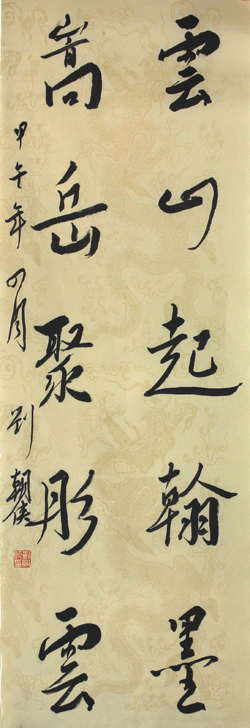 雲山起翰墨
嵩岳聚彤雲
甲午年四月劉朝俠